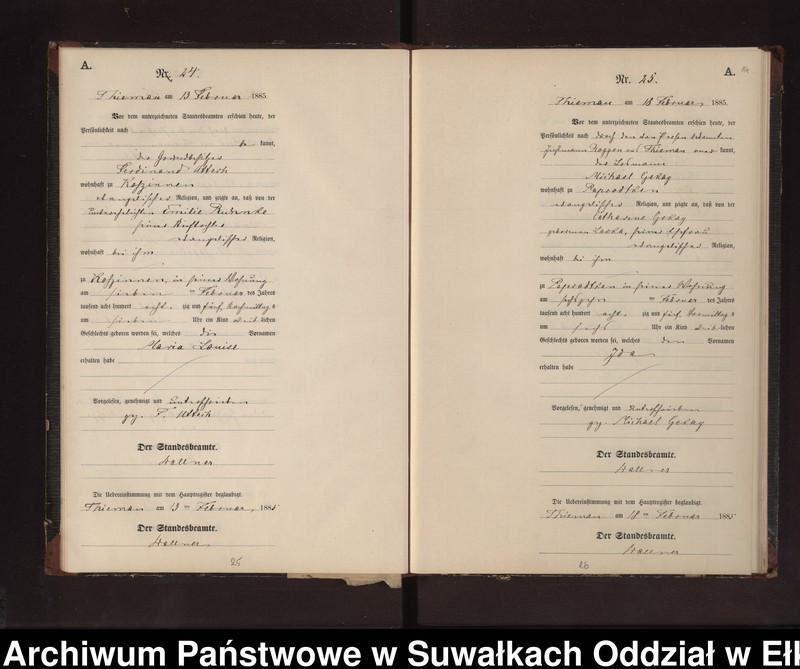 A.
Nr. 24.
Thiemau am 13 Februar 1885.
Vor dem unterzeichneten Standesbeamten erschien heute, der
Persönlichkeit nach
be kannt,
der
Ferdinand Utech
wohnhaft zu
evangelischer Religion, und zeigte an, daß von der
unverehelichten Emilie
seiner
evangelischer Religion,
wohnhaft bei ihm
zu in seiner Wohnung
am sieben ten Februar des Jahres
tausend acht hundert acht zig und fünf, Nachmittag s
um sieben Uhr ein Kind weib lichen
Geschlechts geboren worden sei, welches die Vornamen
Maria Louise
erhalten habe
Vorgelesen, genehmigt und unterschrieben
gez. F. Utech
Der Standesbeamte.
Die Uebereinstimmung mit dem Hauptregister beglaubigt.
Thiemau am 13 ten Februar 1885
Der Standesbeamte.
25
A.
Nr. 25.
Thiemau am 18 Februar 1885.
Vor dem unterzeichneten Standesbeamten erschien heute, der
Persönlichkeit nach durch den der Person bekannten
aus Thiemau aner kannt,
der Losmann
Michael
wohnhaft zu
evangelischer Religion, und zeigte an, daß von der
Catharine
geborenen seiner Ehefrau
evangelischer Religion,
wohnhaft bei ihm
zu in seiner Wohnung
am sechszehn ten Februar des Jahres
tausend acht hundert acht zig und fünf, Vormittag s
um sechs Uhr ein Kind weib lichen
Geschlechts geboren worden sei, welches den Vornamen
Ida
erhalten habe
Vorgelesen, genehmigt und unterschrieben
gez. Michael
Der Standesbeamte.
Die Uebereinstimmung mit dem Hauptregister beglaubigt.
Thiemau am 18 ten Februar 1885
Der Standesbeamte.
26
Archiwum Państwowe w Suwałkach Oddział w Eł